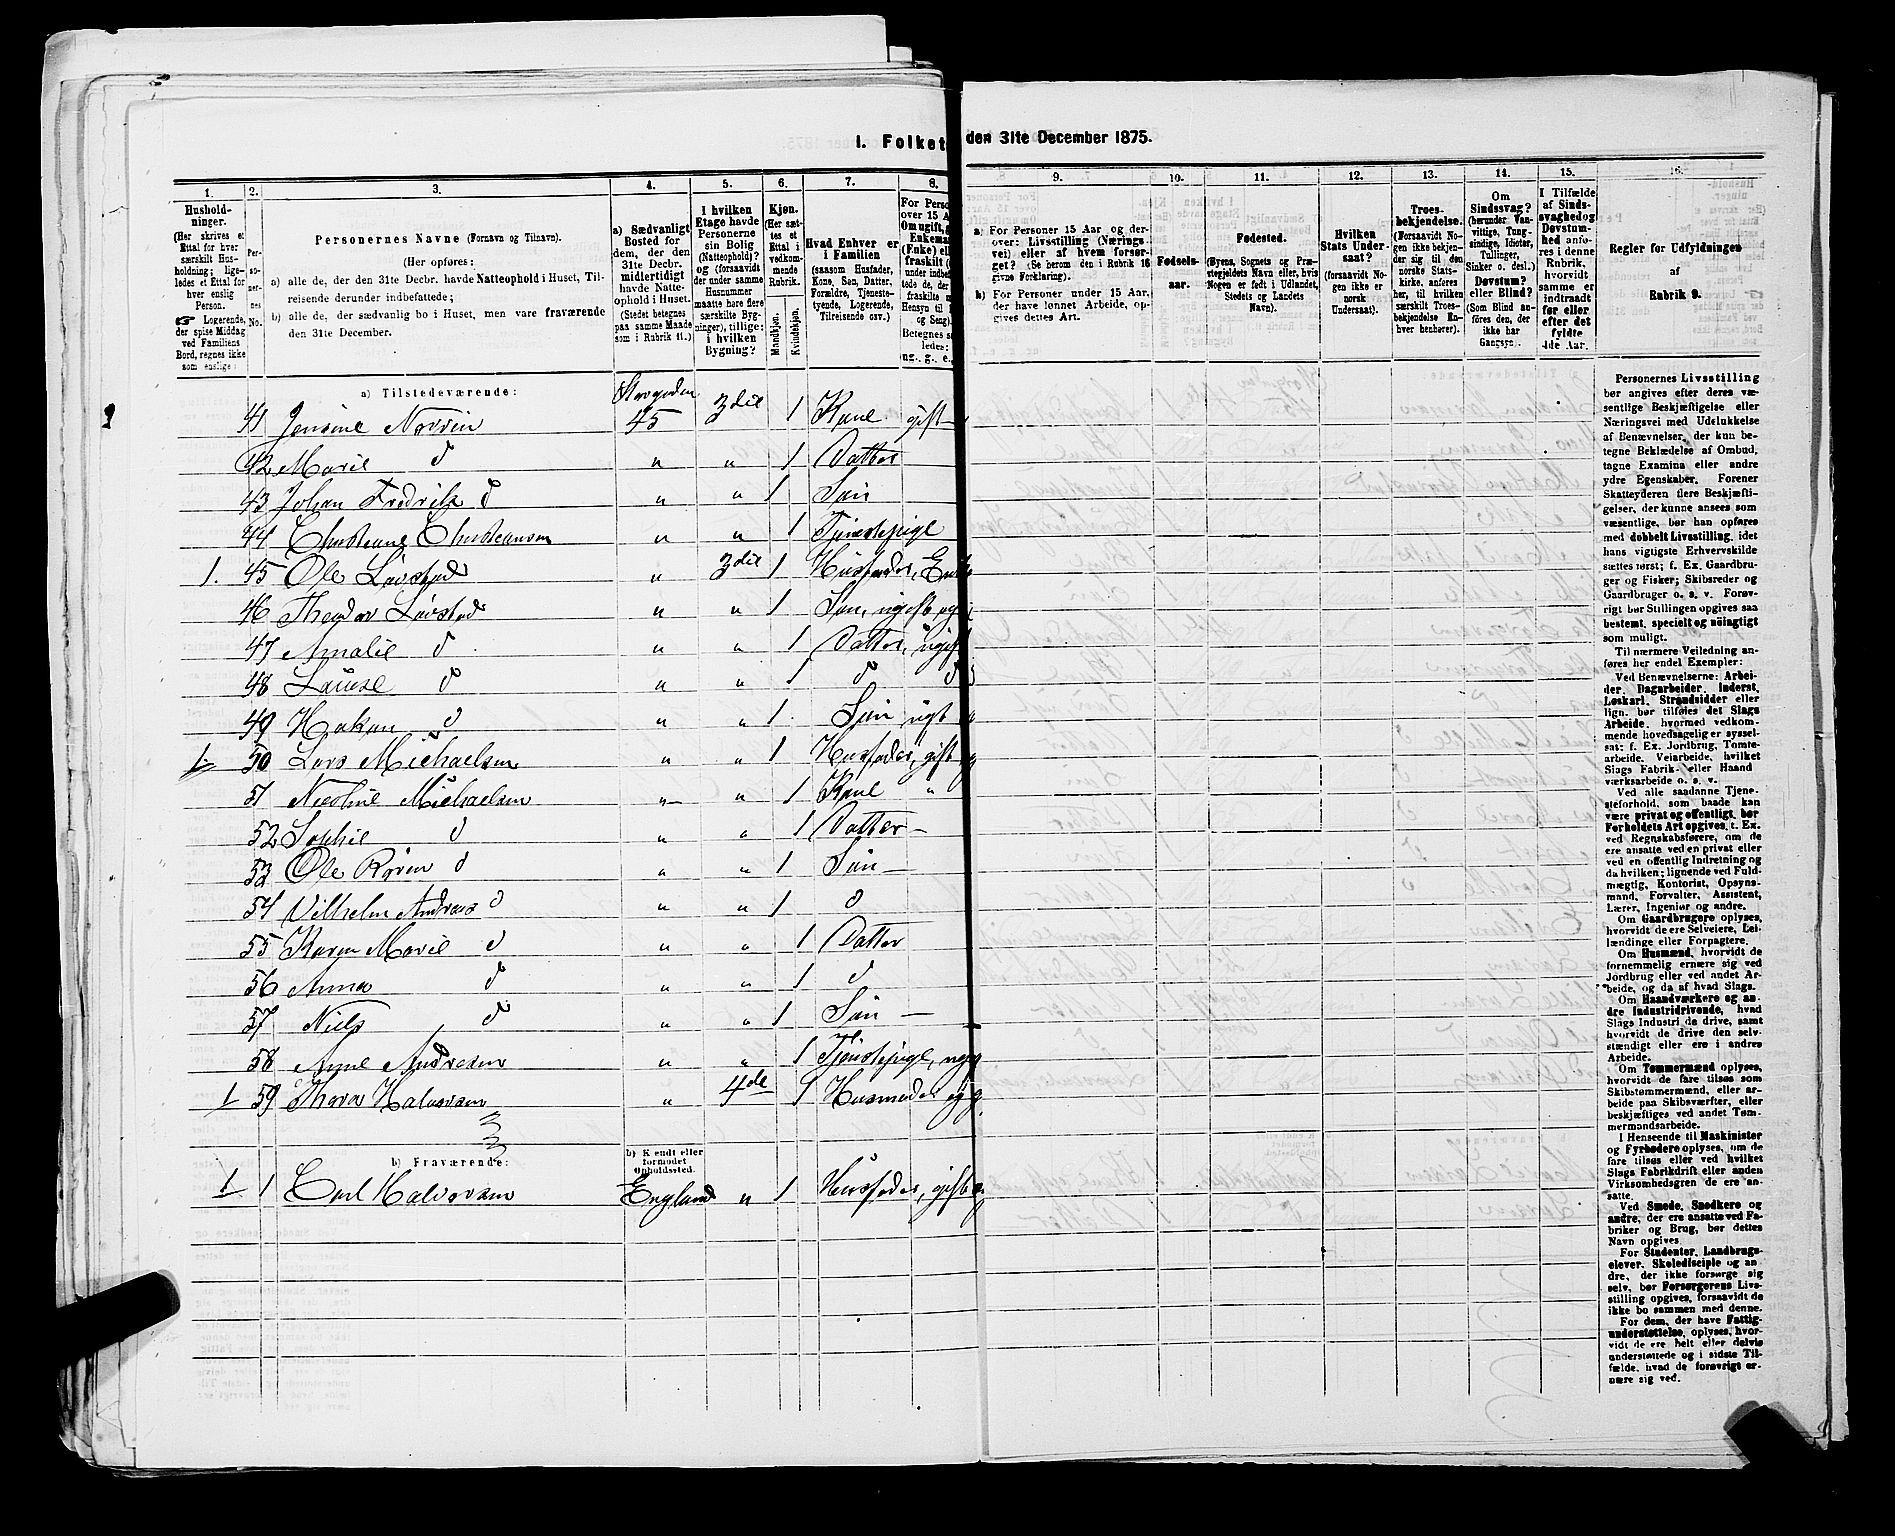 I. Folket den 31te December 1875.
1. 2. 3. 4. 5. 6. 7. 8. 9. 10. 11. 12. 13. 14. 15. 16.
Hushold-
ninger.
(Her skrives et
Ettal for hver
særskilt Hus-
holdning; lige-
ledes et Ettal for
hver enslig
Person.
☞ Logerende,
der spise Middag
ved Familiens
Bord, regnes ikke
som enslige.)
Per-
so-
ner-
nes
No.
Personernes Navne (Fornavn og Tilnavn).
(Her opføres:
a) alle de, der den 31te Decbr. havde Natteophold i Huset, Til-
reisende derunder indbefattede;
b) alle de, der sædvanlig bo i Huset, men vare fraværende
den 31te December.
a) Sædvanligt
Bosted for
dem, der den
31te Decbr.
midlertidigt
havde Natte-
ophold i Huset.
(Stedet betegnes
paa samme Maade
som i Rubrik 11.)
I hvilken
Etage havde
Personerne
sin Bolig
(Natteophold)?
og (forsaavidt
der under samme
Husnummer
maatte høre flere
særskilte Byg-
ninger), tillige:
i hvilken
Bygning?
Kjøn.
(Her sæt-
tes et
Ettal i
vedkom-
mende
Rubrik.
Mandkjøn.
Kvindekjøn.
Hvad Enhver er
i Familien
(saasom Husfader,
Kone, Søn, Datter,
Forældre, Tjeneste-
tyende, Logerende,
Tilreisende osv.)
For Pers
over 15 A
Om ugift, g
Enkema
(Enke) el
fraskilt (
under indbef
tede de, de
fraskilte m
Hensyn til
og Seng).
Betegnes s
ledes:
ug., g., e.,
a) For Personer 15 Aar og der-
over: Livsstilling (Nærings-
vei) eller af hvem forsør-
get? (Se herom den i Rubrik 16
givne Forklaring).
b) For Personer under 15 Aar,
der have lønnet Arbeide, op-
gives dettes Art.
Fødsels-
aar.
Fødested.
(Byens, Sognets og Præ-
stegjeldets Navn eller, hvis
Nogen er født i Udlandet,
Stedets og Landets
Navn).
Hvilken
Stats Under-
saat?
(forsaavidt No-
gen ikke er
norsk
Undersaat).
Troes-
bekjendelse.
(Forsaavidt No-
gen ikke bekjen-
der sig til den
norske Stats-
kirke, anføres
her, til hvilken
særskilt Troes-
bekjendelse En-
hver henhører).
Om
Sindssvag?
(herunder Van-
vittige, Tung-
sindige, Idioter,
Tullinger,
Sinker o. desl.)
Døvstum?
eller Blind?
(Som Blind an-
føres den, der
ikke har
Gangsyn.)
I Tilfælde
af Sinds-
svaghed og
Døvstum-
hed anfø-
res i denne
Rubrik,
hvorvidt
samme er
indtraadt
før eller
efter det
fyldte
4de Aar.
Regler for Udfyldningen
af
Rubrik 9.
a) Tilstedeværende:
41 Jensine Norvin Storgaden 45 3die 1 Kone gift
42 Marie d " " 1 Datter
43 Johan Fredrik d " " 1 Søn
44 Christiane Christiansen " " 1 Tjenestepige
1. 45 Ole Løvstad " 3die 1 Husfader, Enke
46 Theodor Løvstad " " 1 Søn, ugift
47 Amalie d " " 1 Datter, ugift
48 Louise d " " 1 d d
49 Hakon d " " 1 Søn ugt
1. 50 Lars Michaelsen " " 1 Husfader, gift
51 Nicoline Michaelsen " " 1 Kone "
52 Sophie d " " 1 Datter
53 Ole d " " 1 Søn
54 Vilhelm Andreas d " " 1 d
55 Karen Marie d " " 1 Datter
56 Anna d " " 1 d
57 Niels d " " 1 Søn
58 Anne Andresen " " 1 Tjenestepige, ug
1 59 Thora Halvorsen " 4de 1 Husmoder
b) Fraværende:
b) Kjendt eller
formodet
Opholdssted.
1 1 Carl Halvorsen England " 1 Husfader, gift
Personernes Livsstilling
bør angives efter deres væ-
sentlige Beskjæftigelse eller
Næringsvei med Udelukkelse
af Benævnelser, der kun be-
tegne Beklædelse af Ombud,
tagne Examina eller andre
ydre Egenskaber. Forener
Skatteyderen flere Beskjæfti-
gelser, der kunne ansees som
væsentlige, bør han opføres
med dobbelt Livsstilling, idet
hans vigtigste Erhvervskilde
sættes først; f. Ex. Gaardbru-
ger og Fisker; Skibsreder og
Gaardbruger o. s. v. Forøv-
rigt bør Stillingen opgives saa
bestemt, specielt og nøiagtigt
som muligt.
Til nærmere Veiledning an-
føres her endel Exempler:
Ved Benævnelserne: Arbei-
der, Dagarbeider, Inderst,
Løskarl, Strandsidder eller
lign. bør tilføies det Slags
Arbeide, hvormed vedkom-
mende hovedsagelig er syssel-
sat; f. Ex. Jordbrug, Tomte-
arbeide, Veiarbeide, hvilket
Slags Fabrik- eller Haand-
værksarbeide o. s. v.
Ved alle saadanne Tjene-
steforhold, som baade kan
være privat og offentligt, bør
Forholdets Art opgives, t. Ex.
ved Regnskabsførere, om de
ere ansatte ved en privat eller
ved en offentlig Indretning og
da hvilken; lignende ved Fuld-
mægtig, Kontorist, Opsyns-
mand, Forvalter, Assistent,
Lærer, Ingeniør og andre.
Om Gaardbrugere oplyses,
hvorvidt de ere Selveiere, Lei-
lændinge eller Forpagtere.
Om Husmænd, hvorvidt de
fornemmelig ernære sig ved
Jordbrug eller ved andet Ar-
beide, og da af hvad Slags.
Om Haandværkere og an-
dre Industridrivende, hvad
Slags Industri de drive, samt
hvorvidt de drive den selv-
stændigt eller ere i andres
Arbeide.
Om Tømmermænd oplyses,
hvorvidt de fare tilsøs som
Skibstømmermænd, eller ar-
beide paa Skibsværfter, eller
beskjæftiges ved andet Tøm-
mermandsarbeide.
I Henseende til Maskinister
og Fyrbødere oplyses, om de
fare tilsøs eller ved hvilket
Slags Fabrikdrift eller anden
Virksomhedsgren de ere an-
satte.
Ved Smede, Snedkere og
andre, der ere ansatte ved Fa-
briker og Brug, bør dettes
Navn opgives.
For Studenter, Landbrugs-
elever, Skoledisciple og an-
dre, der ikke forsørge sig
selv, bør Forsørgerens Livs-
stilling opgives, forsaavidt de
ikke bo sammen med denne.
For dem, der have Fattig-
understøttelse, oplyses, hvor-
vidt de ere helt eller delvis
understøttede og i sidste Til-
fælde, hvad de forøvrigt er-
nære sig ved.